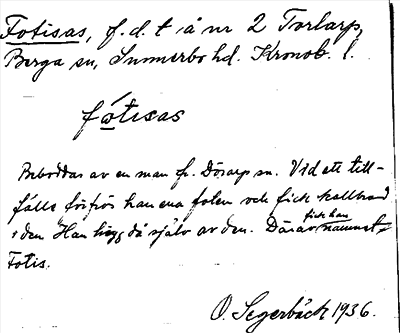 Fotisas, f. d. t. å nr 2 Torlarp,
Berga sn, Sunnerbo hd. Kronob. l.
fótisas
Beboddes av en man fr. Dörarp sn. Vid ett till-
fälle förfrös han ena foten och fick kallbrand
i den Han högg då själv av den. Därav fick han namnet
Fotis.
O. Segerbäck 1936.